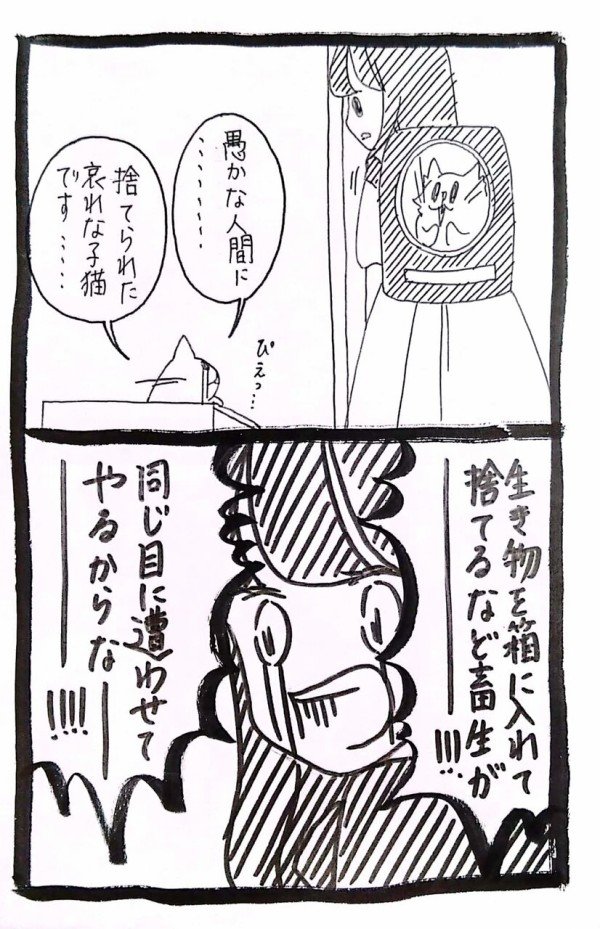 愚かな人間に
・・・・・・・・・
捨てられた
哀れな子猫
です・・・・・
ぴえっ・・・
生き物を箱に入れて
捨てるなど畜生が
――!!!
同じ目に遭わせて
やるからな――
――!!!!